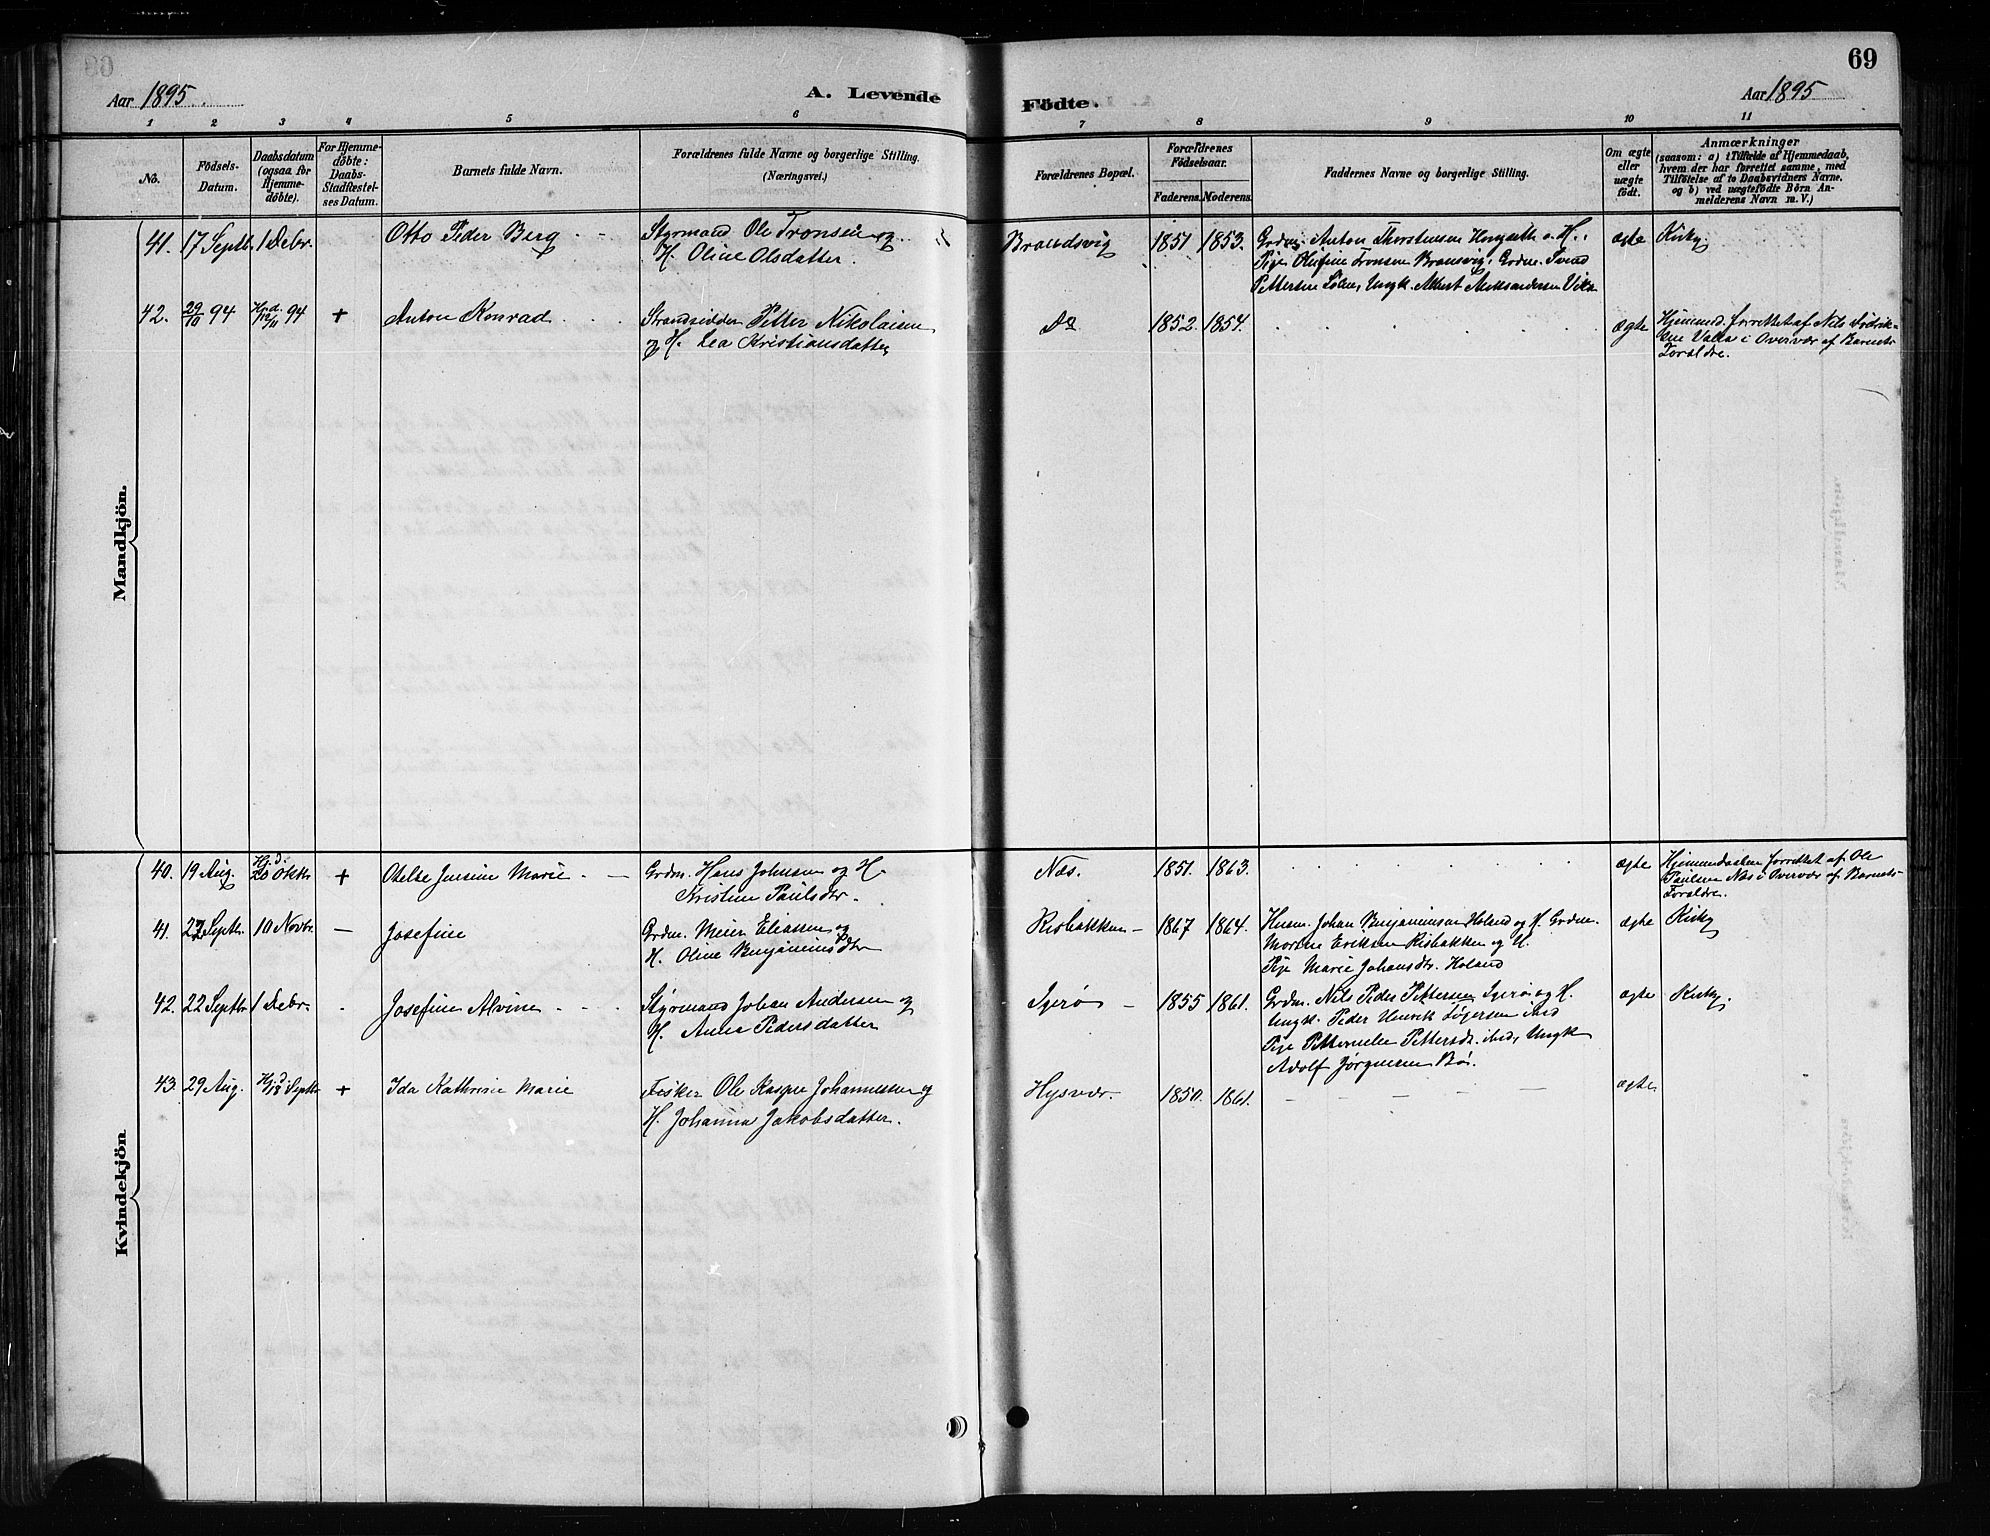 69
Aar 1895
A. Levende
Födte.
Aar 1895
1 2 3 4 5 6 7 8 9 10 11
No.
Födsels-
Datum.
Daabsdatum
(ogsaa for
Hjemme-
döbte).
For Hjemme-
döbte:
Daabs-
Stadfæstel-
ses Datum.
Barnets fulde Navn.
Forældrenes fulde Navne og borgerlige Stilling.
(Næringsvei.)
Forældrenes Bopæl.
Forældrenes
Födselsaar.
Faderens. Moderens.
Faddernes Navne og borgerlige Stilling.
Om ægte
eller
uægte
födt.
Anmærkninger
(saasom: a) i Tilfælde af Hjemmedaab,
hvem der har forrettet samme, med
Tilföielse af to Daabsvidners Navne,
og b) ved uægtefödte Börn An-
melderens Navn m. V.)
Mandkjön.
41. 17 Septbr. 1 Debr. Otto Peder Berg Styrmand Ole Tronsen og
H. Oline Olsdatter.
Brændsvig 1851 1853. Grdm. Anton Thorstensen H. a. H.,
Pige Olufine Tronsen Brænsvig, Grdm. Svend
Pettersen, Ungk. Albert Aleksandersen Vik
ægte Kirky.
42. 29/10 94 Hjd. 12/11 94 + Anton Konrad Strandsidder Petter Nikolaisen
og H. Lea Kristiansdatter
Do 1852. 1854. ægte Hjemmed. forrettet af Nils Fredrik-
sen Valla i Overvær af Barnets
Forældre.
Kvindekjön.
40. 19 Aug. Hj.d. 20 Oktbr. + Otelse Jensine Marie Grdm. Hans Johnsen og H.
Kristine Paulsdtr.
Næs. 1851. 1863. ægte Hjemmedaaben forrettet af Ole
Paulsen Næs i Overvær af Barnets
Forældre.
41. 22 Septbr. 10 Novbr. — Josefine Grdm. Meier Eliassen og
H. Oline Benjaminsdtr
Risbakken 1867 1864. Husm. Johan Benjaminsen Holand og H. Grdm.
Morten Eriksen Risbakken og H.
Pige Marie Johansdtr. Holand
ægte Kirky
42. 22 Septbr. 1 Debr. Josefine Alvine Styrmand Johan Andersen og
H. Anna Pedersdatter
Igerø 1855 1861. Grdm. Nils Peder Pettersen Igerø og H.
Ungk. Peder Henrik ibid
Pige Petternelle Pettersdtr. ibid, Ungk
Adolf Jørgensen Bø.
ægte Kirky.
43. 29 Aug. Hjd. 18 Septbr. + Ida Kathrine Marie Fisker Ole Kasper Johannessen og
H. Johanna Jakobsdatter.
Hysvær. 1850. 1861. ægte